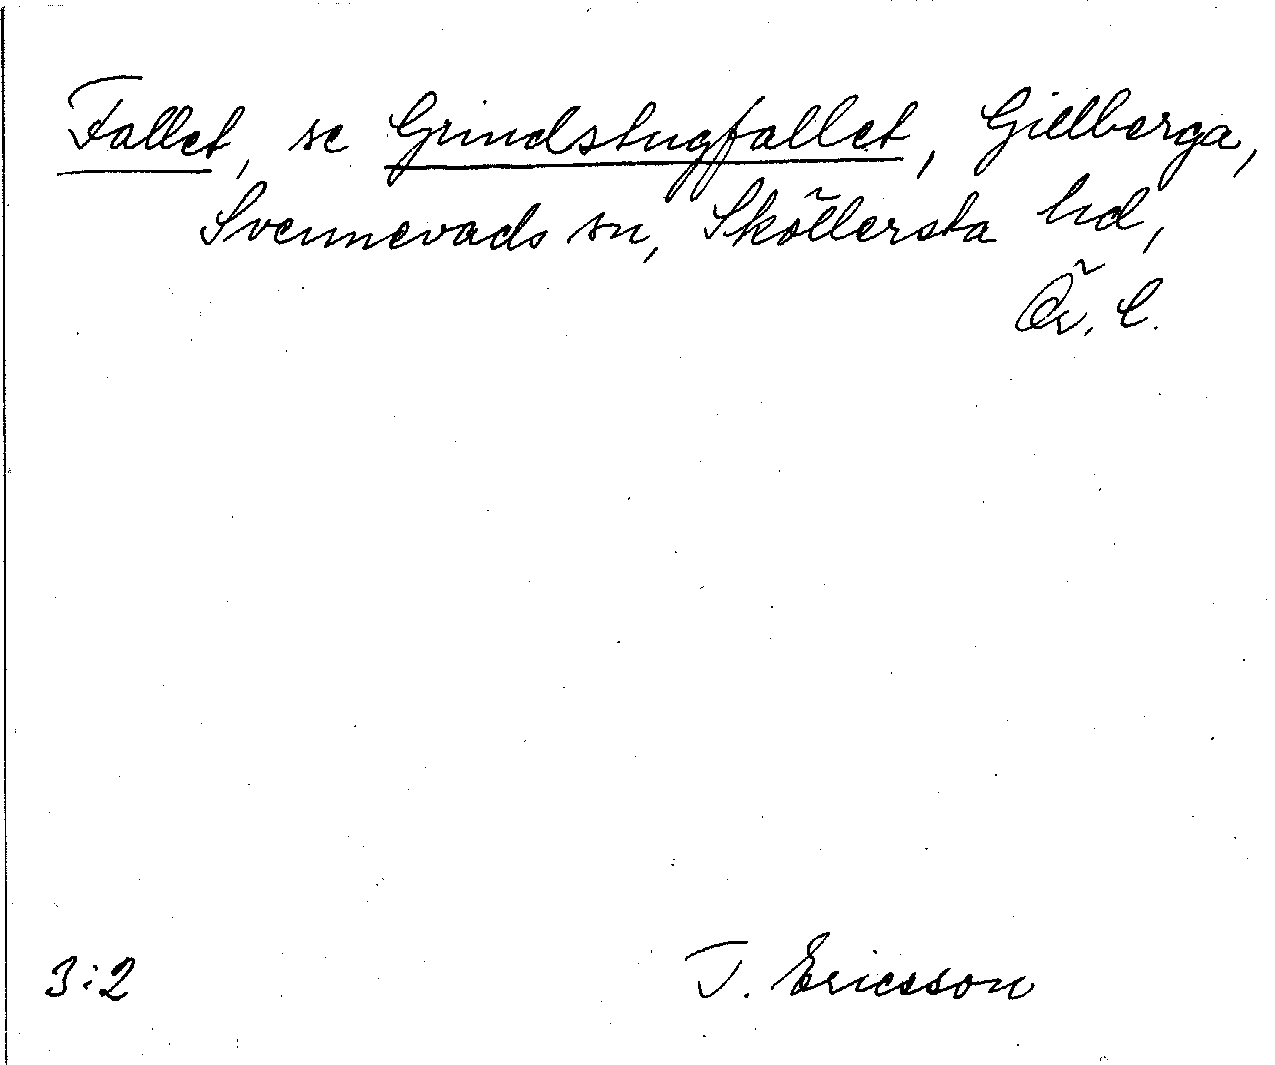 Fallet, se Grindstugfallet, Gillberga,
Svennevads sn, Sköllersta hd,
Ör. l.
3:2
T. Ericsson